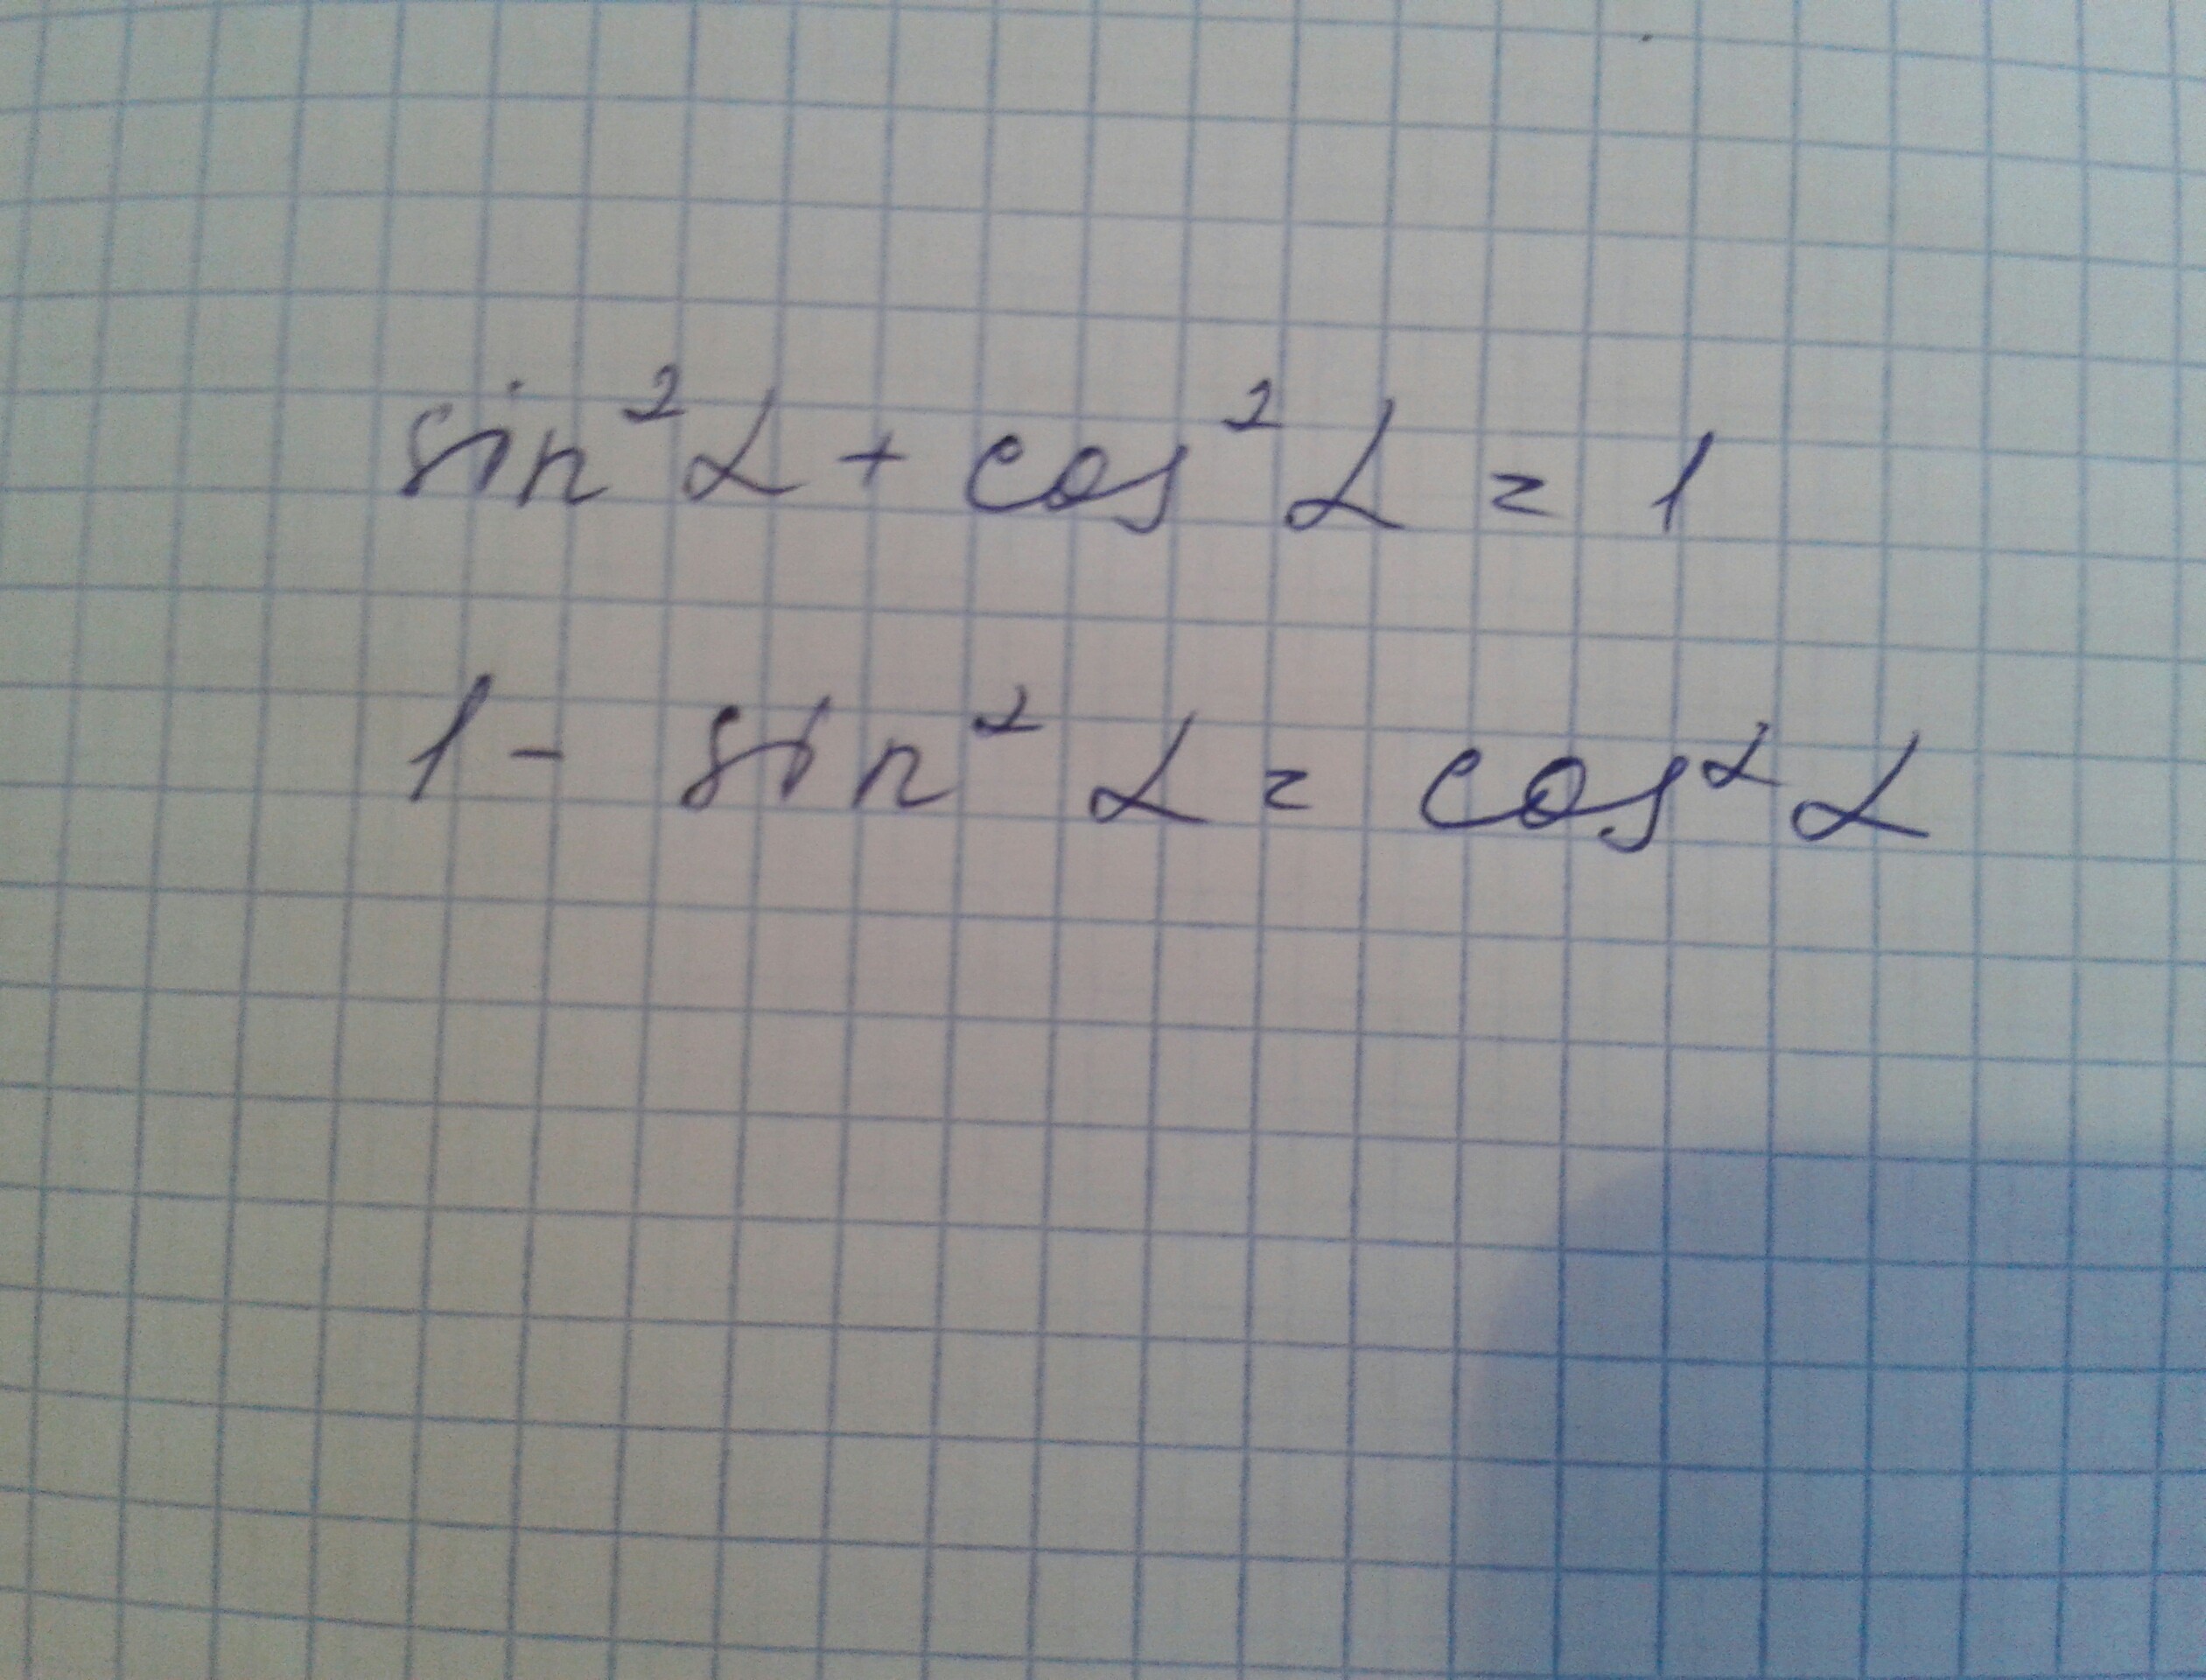 sin²α + cos²α = 1
1 - sin²α = cos²α